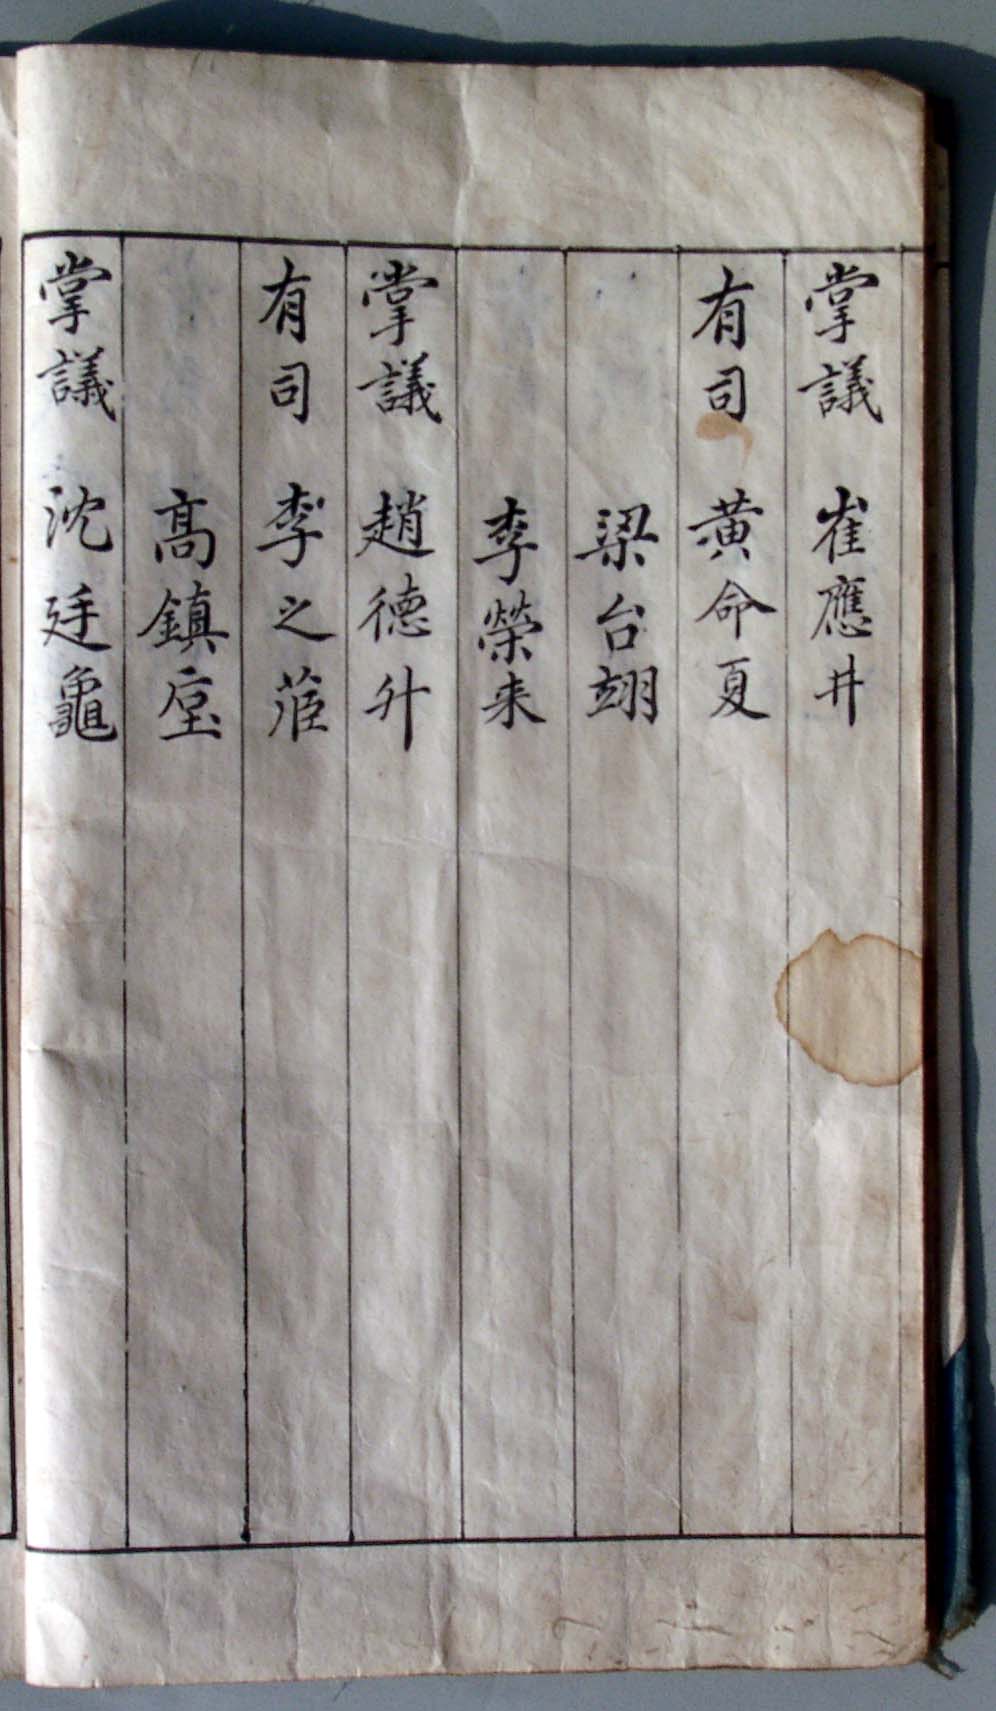 掌議 崔應井
有司 黃命夏
梁台翊
李榮来
掌議 趙德升
有司 李之
高鎮
掌議 沈廷龜